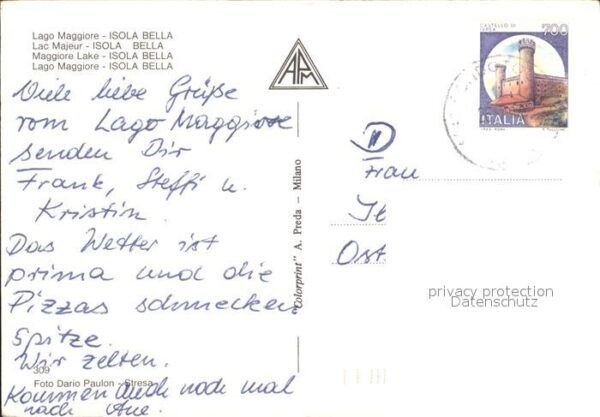 Lago Maggiore - ISOLA BELLA
Lac Majeur - ISOLA BELLA
Maggiore Lake - ISOLA BELLA
Lago Maggiore - ISOLA BELLA
Viele liebe Grüße
vom Lago Maggiore
senden Dir
Frank, Steffi u.
Kristin.
Das Wetter ist
prima und die
Pizzas schmecken
Spitze.
Wir zelten.
Kommen auch noch mal
nach Aue.
309
Foto Dario Paulon - Stresa
APM
"Colorprint" A. Preda - Milano
CASTELLO DI
IVREA
700
ITALIA
D
Frau
Ost
privacy protection
Datenschutz